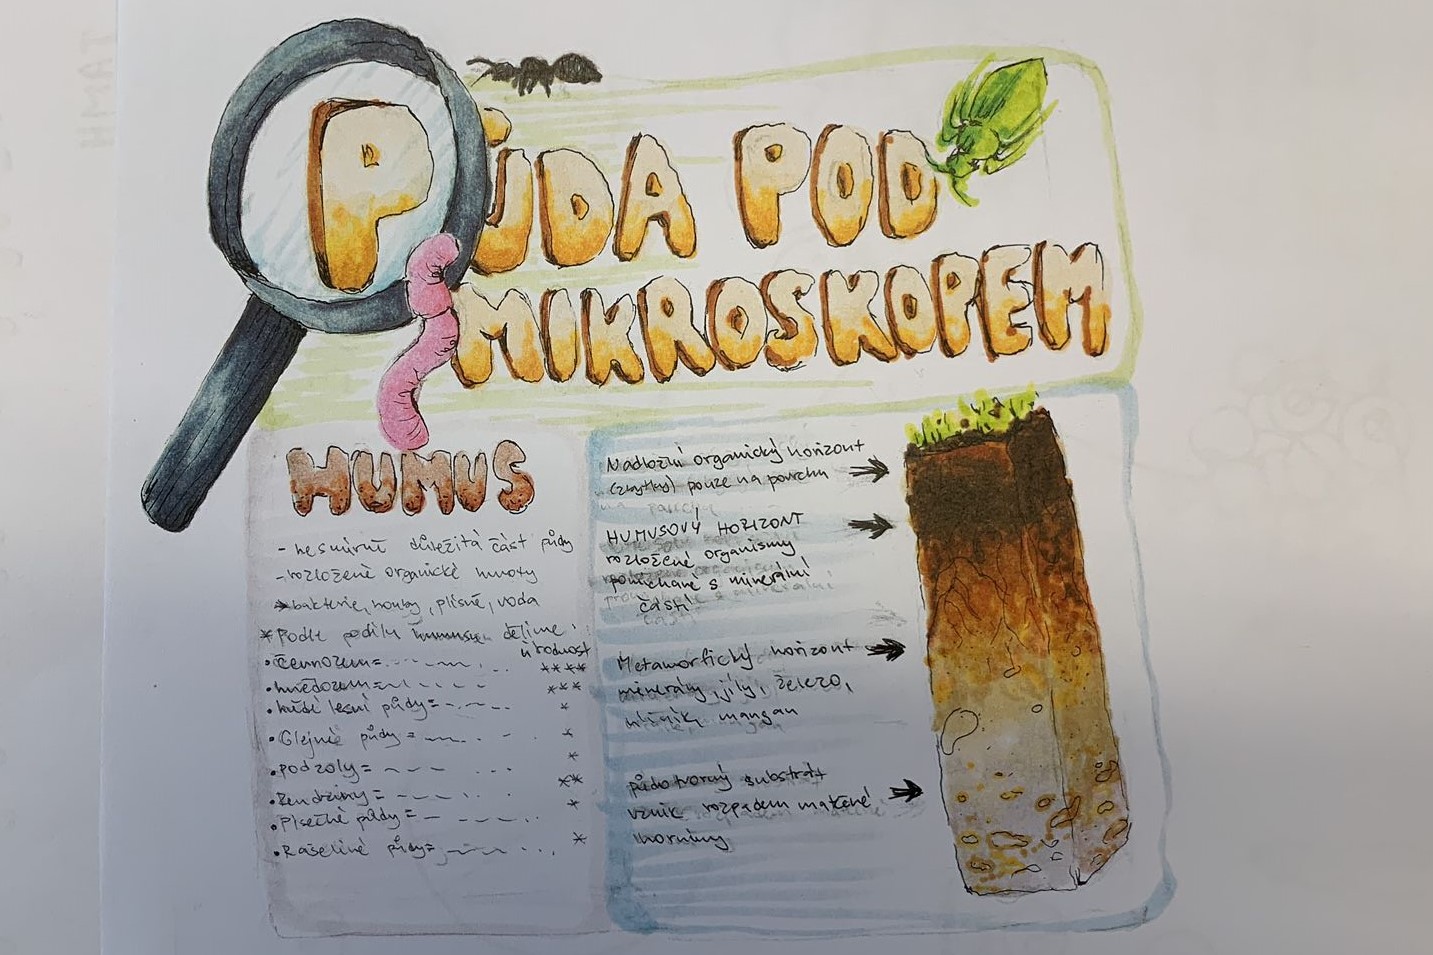 PŮDA POD
MIKROSKOPEM
HUMUS
- nesmírně důležitá část půdy
- rozložené organické hmoty
bakterie, houby, plísně, voda
* Podle podílu humusu dělíme:
úrodnost
• černozem = ****
• hnědozem = ***
• hnědé lesní půdy = *
• Glejné půdy = *
• podzoly = *
• Rendziny = **
• Písečné půdy = *
• Rašelinné půdy = *
Nadložní organický horizont
(zbytky) pouze na povrchu
HUMUSOVÝ HORIZONT
rozložené organismy
pomíchané s minerální
částí
Metamorfický horizont
minerály, jíly, železo,
hliník, mangan
půdotvorný substrát
vznik rozpadem matečné
horniny